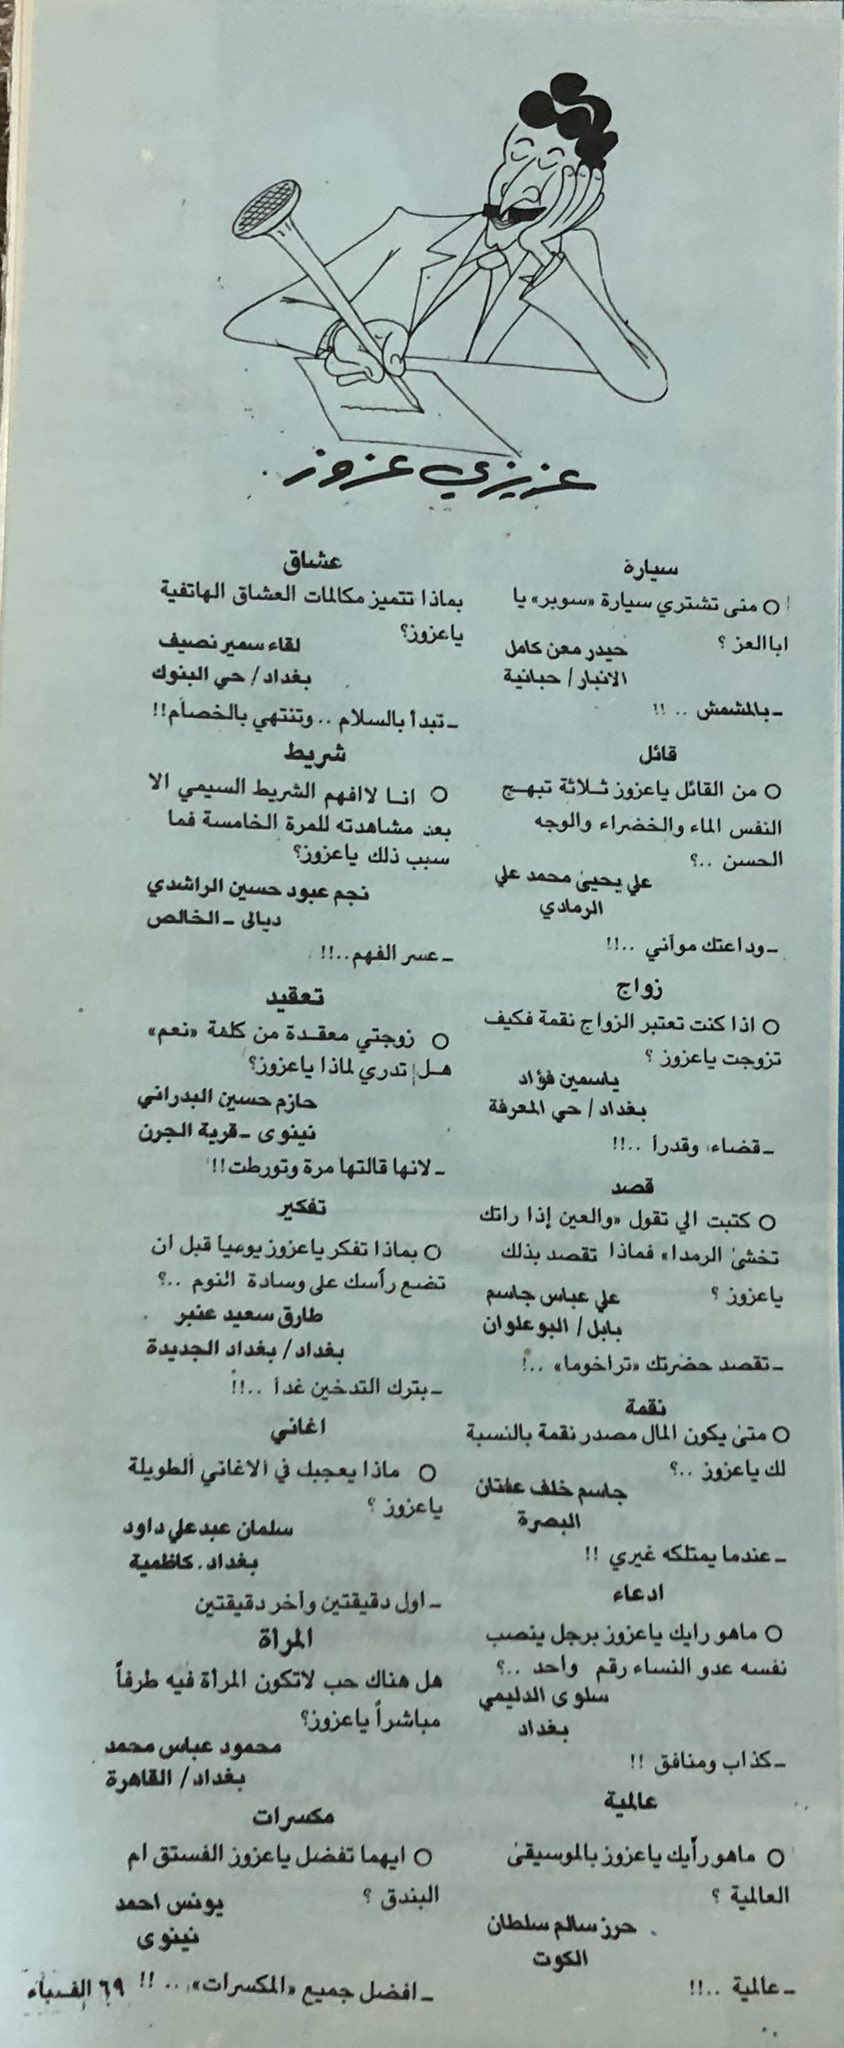 عزيزي عزوز
سيارة
○ متى تشتري سيارة «سوبر» يا
ابا العز ؟
حيدر معن كامل
الانبار / حبانية
ـ بالمشمش .. !!
قائل
○ من القائل ياعزوز ثلاثة تبهج
النفس الماء والخضراء والوجه
الحسن ..؟
علي يحيى محمد علي
الرمادي
ـ وداعتك موآني ..!!
زواج
○ اذا كنت تعتبر الزواج نقمة فكيف
تزوجت ياعزوز ؟
ياسمين فؤاد
بغداد / حي المعرفة
ـ قضاء وقدرأ ..!!
قصد
○ كتبت الي تقول «والعين إذا راتك
تخشى الرمدا» فماذا تقصد بذلك
ياعزوز ؟
علي عباس جاسم
بابل / البو علوان
ـ تقصد حضرتك «تراخوما» ..!
نقمة
○ متى يكون المال مصدر نقمة بالنسبة
لك ياعزوز ..؟
جاسم خلف
البصرة
ـ عندما يمتلكه غيري !!
ادعاء
○ ماهو رايك ياعزوز برجل ينصب
نفسه عدو النساء رقم واحد ..؟
سلوى الدليمي
بغداد
ـ كذاب ومنافق !!
عالمية
○ ماهو رأيك ياعزوز بالموسيقى
العالمية ؟
حرز سالم سلطان
الكوت
ـ عالمية ..!!
عشاق
بماذا تتميز مكالمات العشاق الهاتفية
ياعزوز؟
لقاء سمير نصيف
بغداد / حي البنوك
ـ تبدأ بالسلام .. وتنتهي بالخصام!!
شريط
○ انا لاافهم الشريط السيمي الا
بعد مشاهدته للمرة الخامسة فما
سبب ذلك ياعزوز؟
نجم عبود حسين الراشدي
ديالى ـ الخالص
ـ عسر الفهم..!!
تعقيد
○ زوجتي معقدة من كلمة «نعم»
هل تدري لماذا ياعزوز؟
حازم حسين البدراني
نينوى ـ قرية الجرن
ـ لانها قالتها مرة وتورطت!!
تفكير
○ بماذا تفكر ياعزوز يومياً قبل ان
تضع رأسك على وسادة النوم ..؟
طارق سعيد عنبر
بغداد / بغداد الجديدة
ـ بترك التدخين غداً ..!!
اغاني
○ ماذا يعجبك في الاغاني الطويلة
ياعزوز ؟
سلمان عبد علي داود
بغداد . كاظمية
ـ اول دقيقتين وآخر دقيقتين
المرأة
هل هناك حب لاتكون المرأة فيه طرفاً
مباشراً ياعزوز؟
محمود عباس محمد
بغداد / القاهرة
مكسرات
○ ايهما تفضل ياعزوز الفستق ام
البندق ؟
يونس احمد
نينوى
ـ افضل جميع «المكسرات» .. !!
٦٩ الف باء